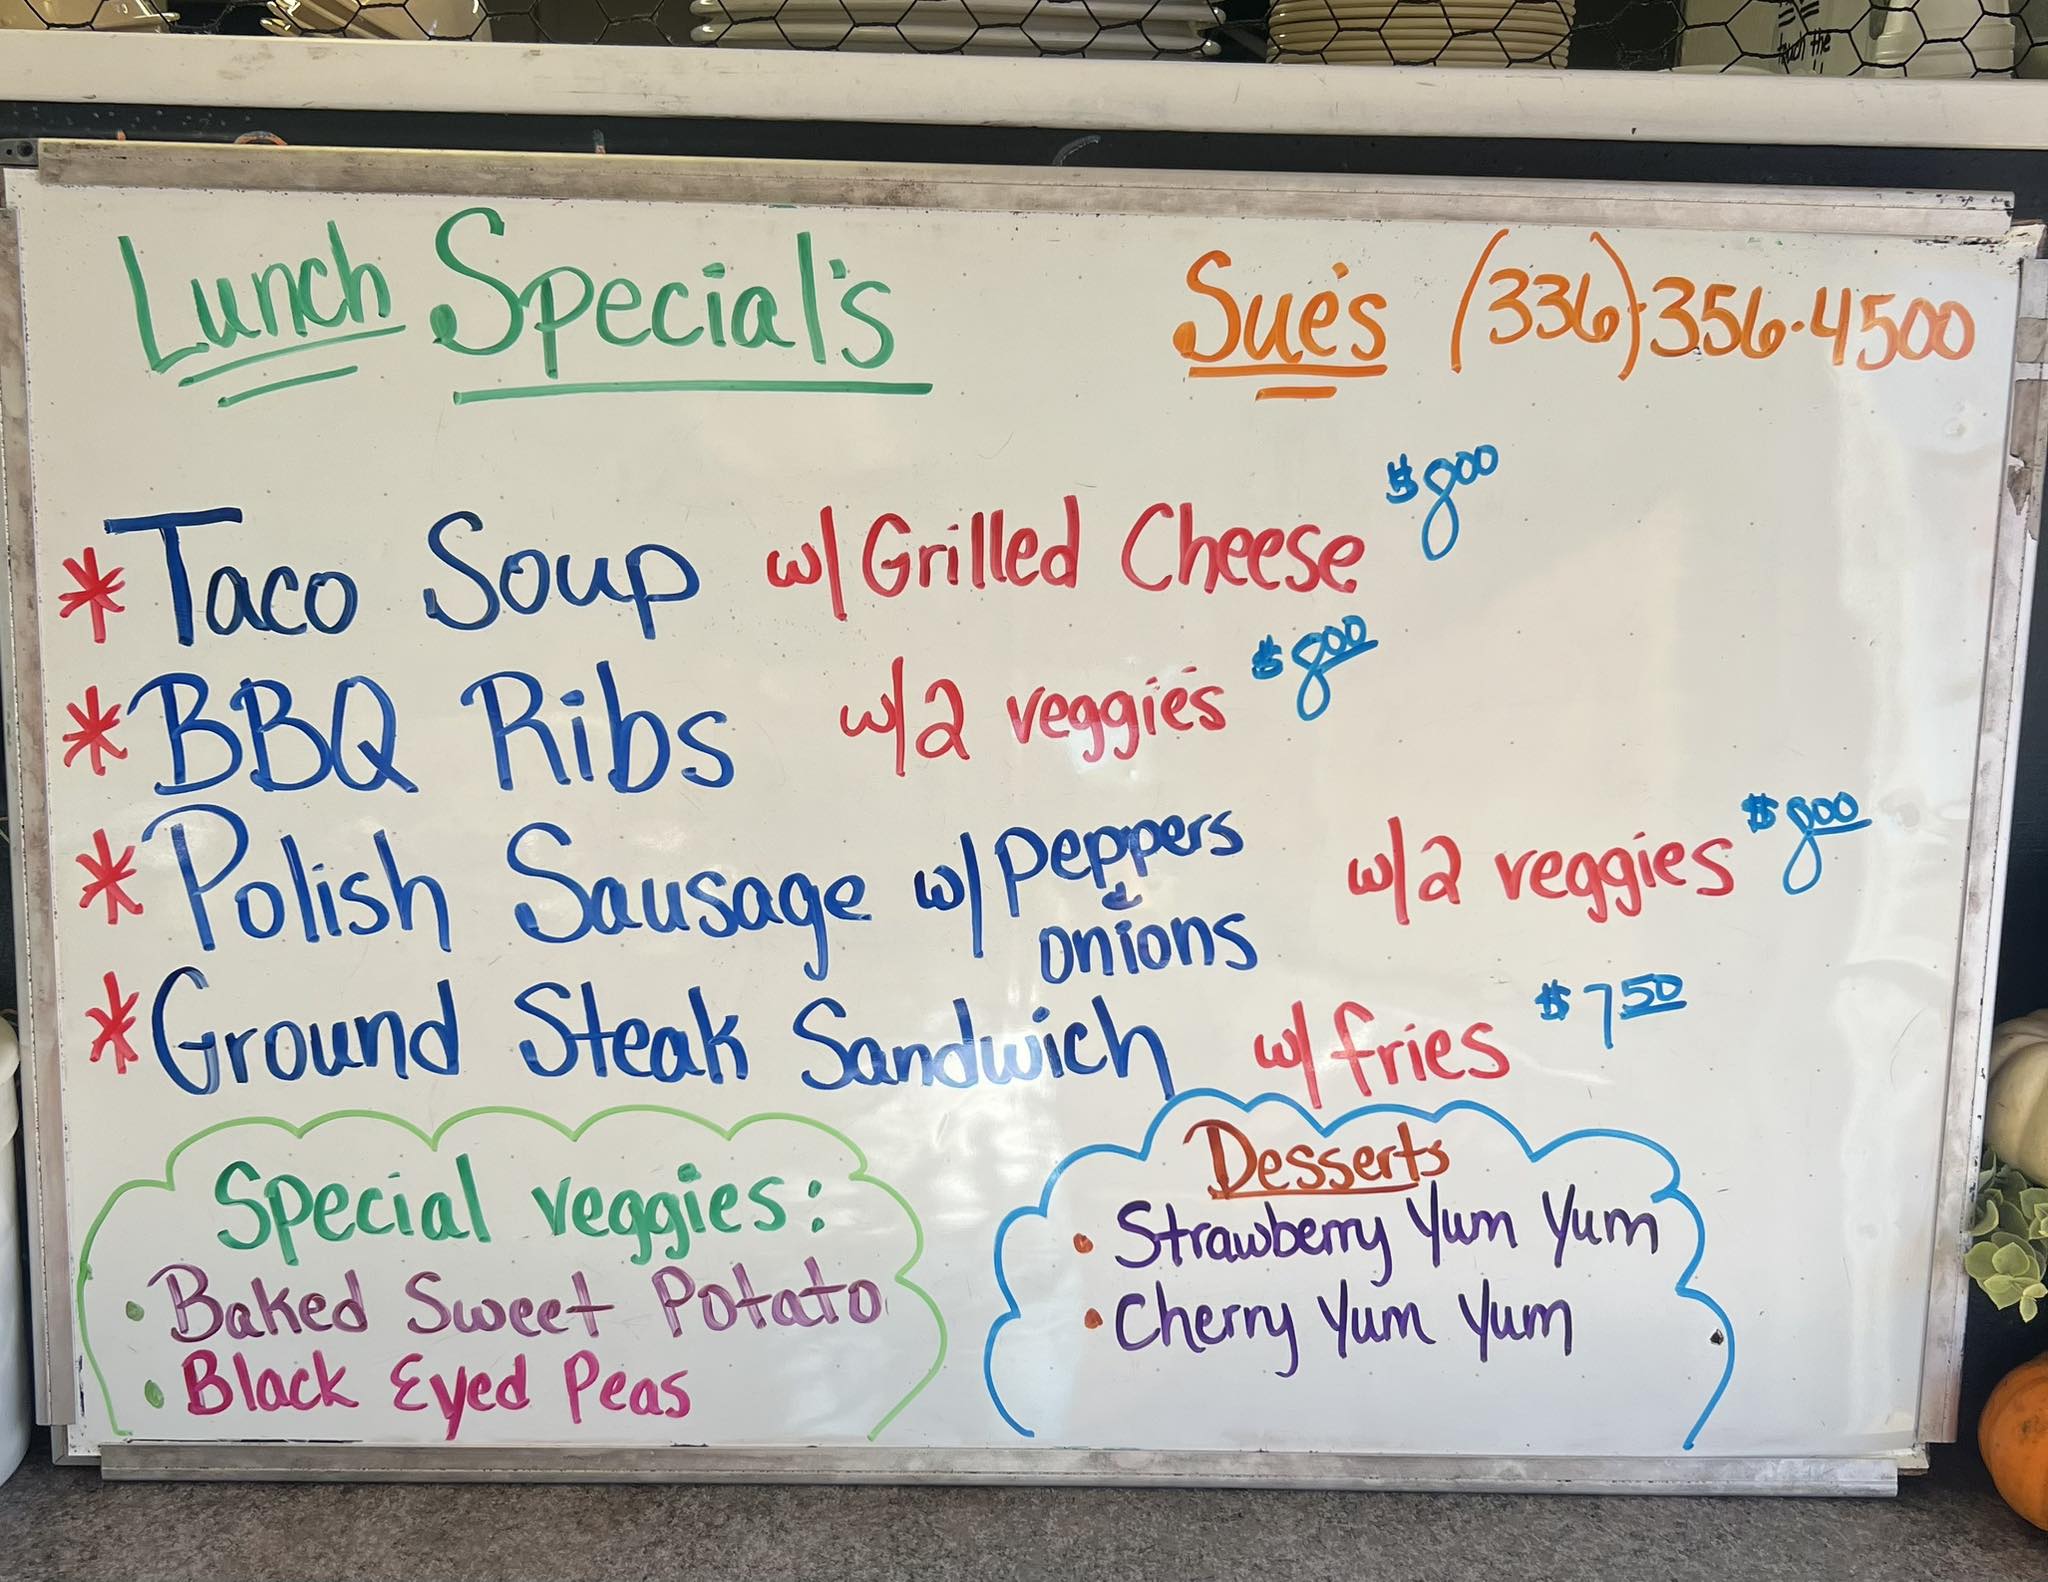 teach the
Lunch Special's
Sue's (336)·356·4500
* Taco Soup w/ Grilled Cheese $800
* BBQ Ribs w/2 veggie's $800
* Polish Sausage w/ Peppers & onions w/2 veggies $800
* Ground Steak Sandwich w/ fries $750
Special veggies:
• Baked Sweet Potato
• Black Eyed Peas
Desserts
• Strawberry Yum Yum
• Cherry Yum Yum